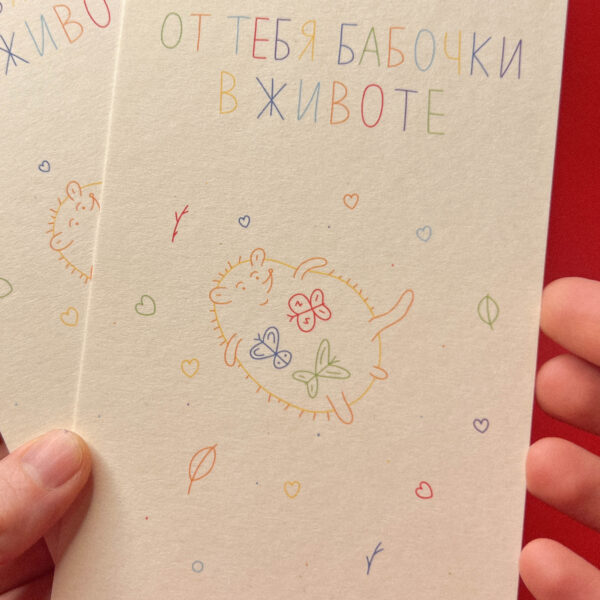 ОТ ТЕБЯ БАБОЧКИ
В ЖИВОТЕ
В ЖИВО